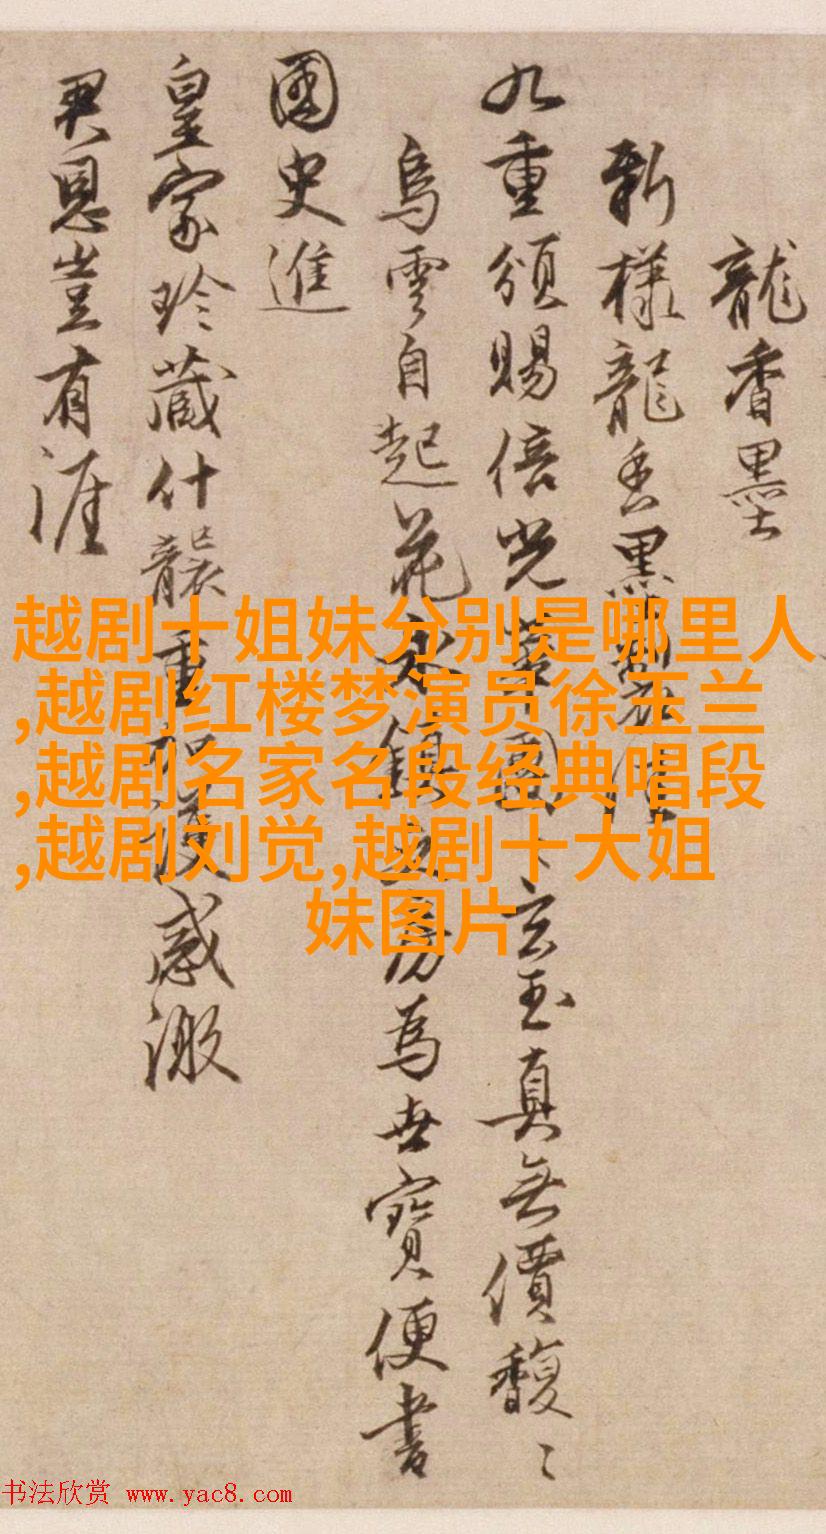 龍香墨
新樣龍香墨製
九重頒賜倍光華團〻玄玉真無價馥〻
烏雲自起花永鎮文房為世寶便書
國史進
皇家珍藏什襲重加護感激
君恩豈有涯
越剧十姐妹分别是哪里人
,越剧红楼梦演员徐玉兰
,越剧名家名段经典唱段
,越剧刘觉,越剧十大姐
妹图片
书法欣赏 www.yac8.com